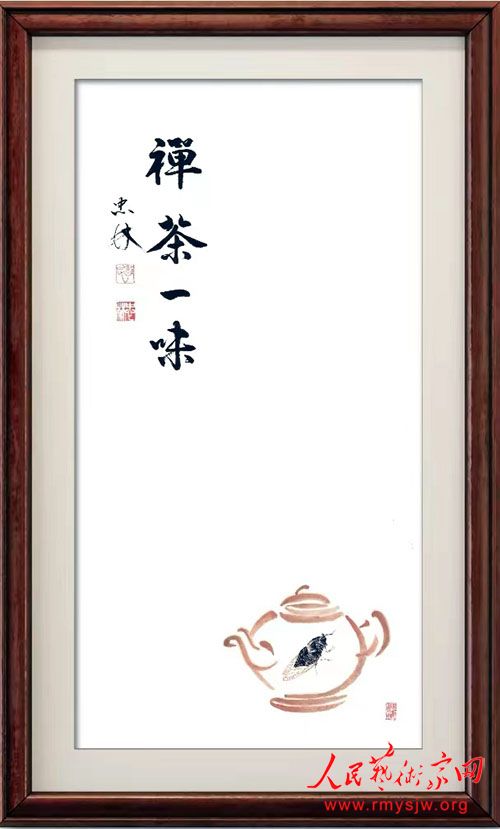 禪茶一味
忠林
人民藝術家网
www.rmysjw.org